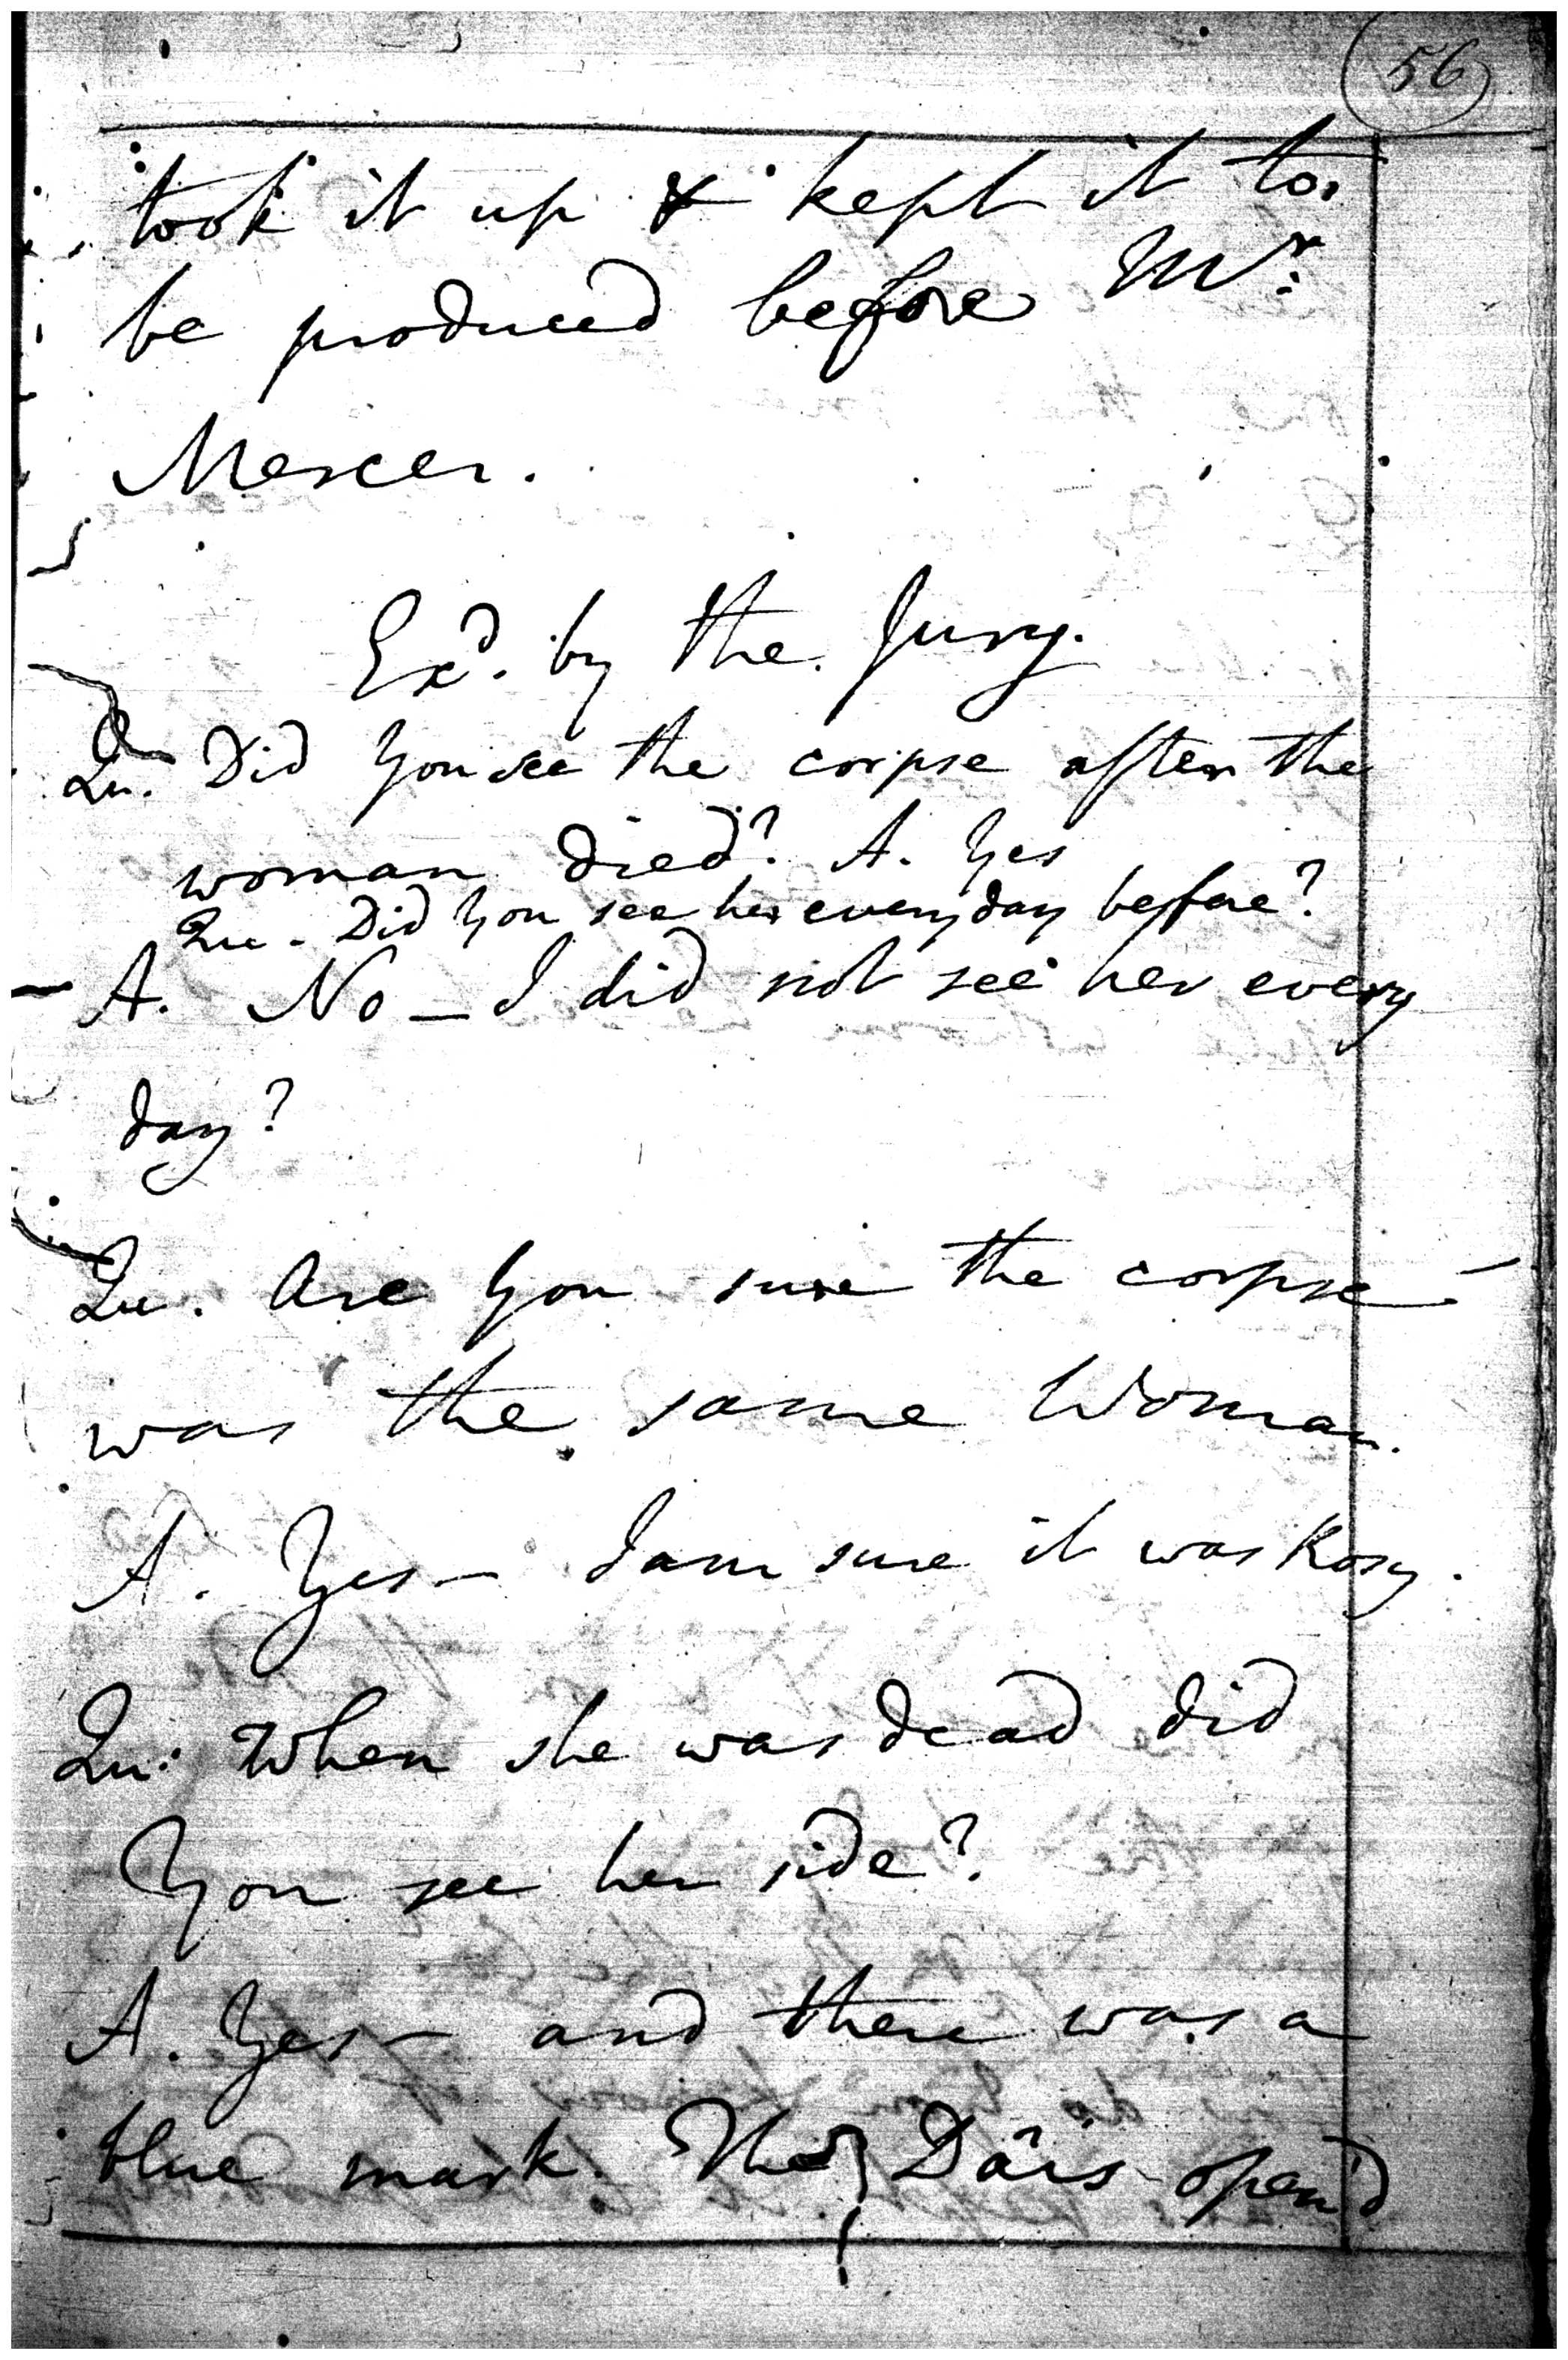 56
took it up & kept it to
be produced before Mr.
Mercer.
Exd. by the Jury.
Qu. Did you see the corpse after the
woman died? A. Yes
Que. Did you see her every day before?
A. No _ I did not see her every
day?
Qu. Are you sure the corpse
was the same Woman.
A. Yes _ I am sure it was Rosy.
Qu: When she was dead did
You see her side?
A. Yes _ and there was a
blue mark. The Dais open'd